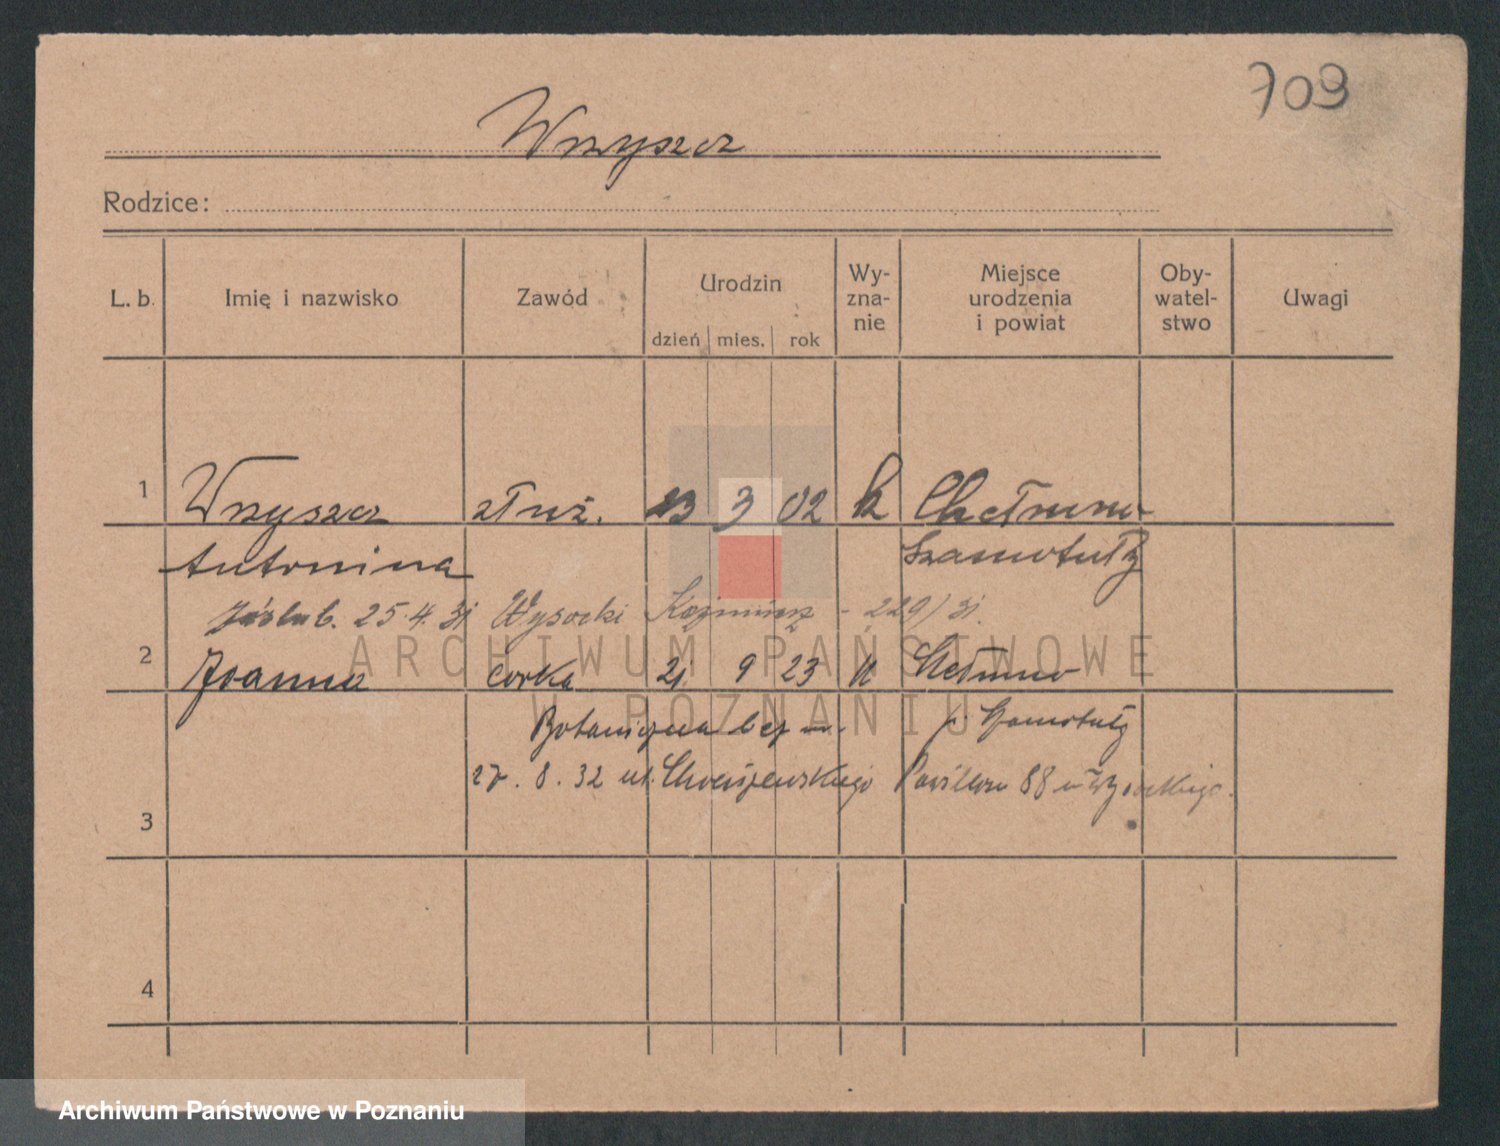 709
Wrzyszcz
Rodzice:
L. b. Imię i nazwisko Zawód Urodzin dzień mies. rok Wy-zna-nie Miejsce urodzenia i powiat Oby-watel-stwo Uwagi
1 Wrzyszcz służ. 23 3 02 k Chełmno
Antonina Szamotuły
zaślub. 25.4.31 Wysocki Kazimierz - 229/31.
2 Joanna córka 21. 9 23 k Chełmno
Botaniczna p. Szamotuły
27.8.32 ul. Pawilon 88 u Wysockiego.
3
4
ARCHIWUM PAŃSTWOWE
W POZNANIU
Archiwum Państwowe w Poznaniu